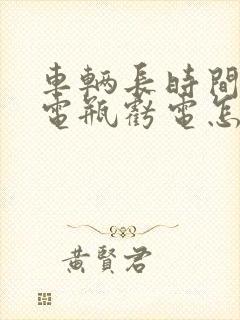 車輛長時間
電瓶虧電怎
黃賢君